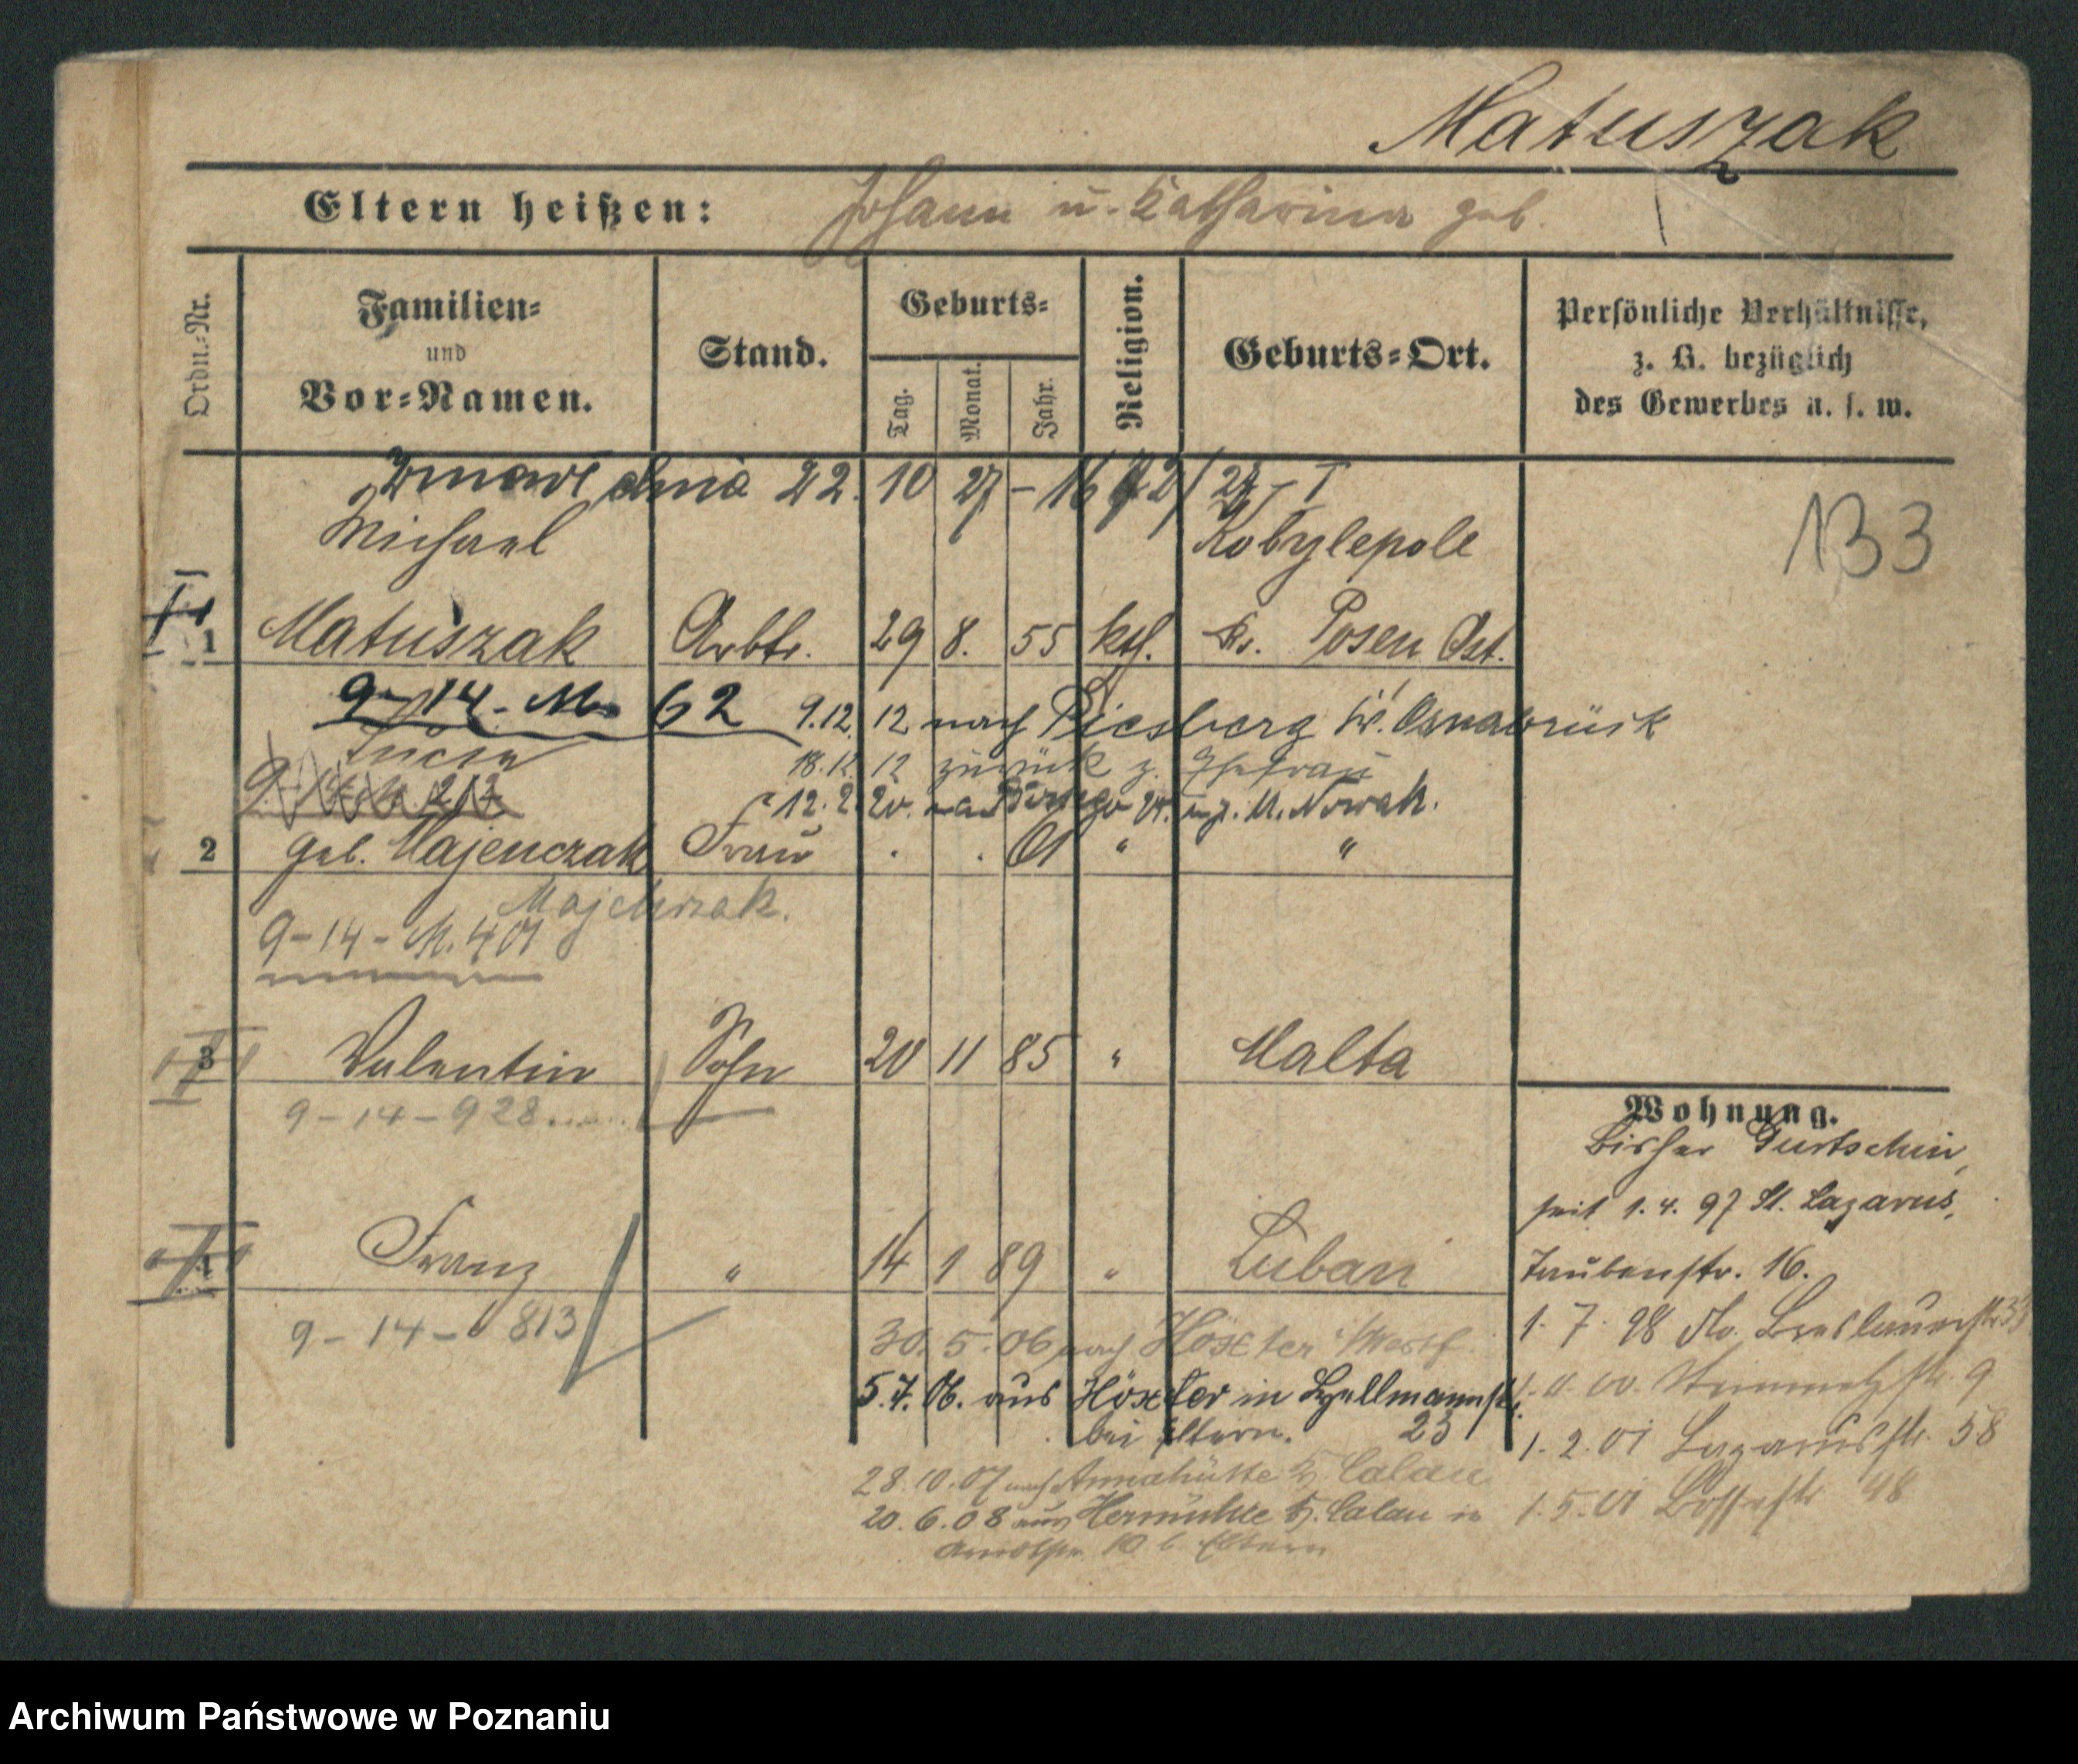 Matuszak
Eltern heißen: Johann u. Katharina geb.
Ordn.-Nr.
Familien-
und
Vor-Namen.
Stand.
Geburts-
Tag.
Monat.
Jahr.
Religion.
Geburts-Ort.
Persönliche Verhältnisse,
z. B. bezüglich
des Gewerbes u. s. w.
Zmarł dnia 22. 10 27
133
Michael Kobylepole
1 Matuszak Arbtr. 29 8. 55 kth. Kr. Posen Ost.
9-14-M. 62 9.12. 12 nach Piesberg Kr. Osnabrück
Lucia 18.12. 12 zurück z. Ehefrau
12. 2. 20. M. Nowak.
2 geb. Majenczak Frau . . 61 " "
Majchrzak.
9-14-M. 401
3 Valentin Sohn 20 11 85 " Malta
9-14-928
Franz " 14 1 89 " Luban
9-14- 813
30. 5. 06 nach Höxter i/Westf.
5. 7. 06. aus Höxter in Hellmannstr.
bei Eltern. 23
28. 10. 07 nach Annahütte Kr. Calau
20. 6. 08 aus Kr. Calau in
10 b. Eltern
Wohnung.
Bisher Gurtschin,
seit 1. 4. 97 St. Lazarus,
Taubenstr. 16.
1. 7. 98 No. Breslauerstr. 33
9
1. 2. 01 Lazarusstr. 58
1. 5. 01 48
Archiwum Państwowe w Poznaniu